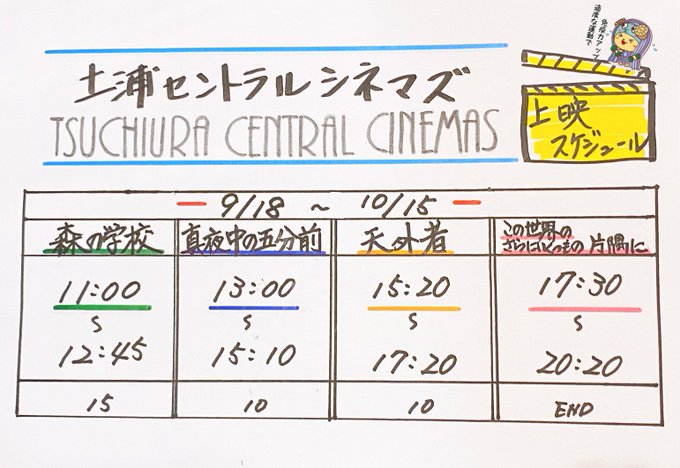 適度な運動で
免疫力アップ
土浦セントラルシネマズ
TSUCHIURA CENTRAL CINEMAS
上映
スケジュール
9/18 ~ 10/15
森の学校
真夜中の五分前
天外者
この世界の
さらにいくつもの 片隅に
11:00
13:00
15:20
17:30
S
S
S
S
12:45
15:10
17:20
20:20
15
10
10
END